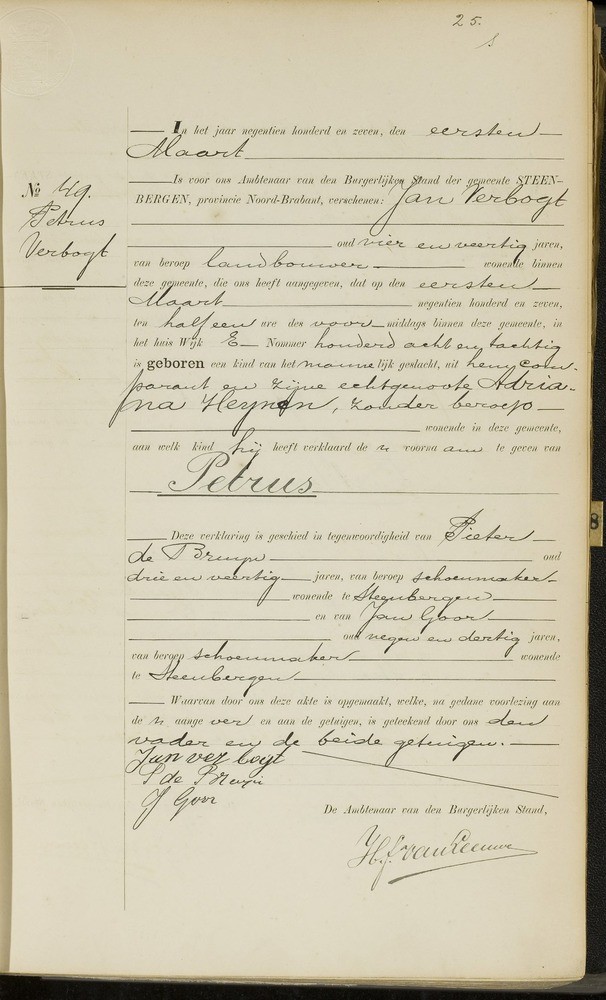 25.
No 49.
Petrus
Verbogt
In het jaar negentien honderd en zeven, den eersten
Maart
Is voor ons Ambtenaar van den Burgerlijken Stand der gemeente STEEN-
BERGEN, provincie Noord-Brabant, verschenen: Jan Verbogt
oud vier en veertig jaren,
van beroep landbouwer wonende binnen
deze gemeente, die ons heeft aangegeven, dat op den eersten
Maart negentien honderd en zeven,
ten half een ure des voor middags binnen deze gemeente, in
het huis Wijk E Nommer honderd acht en tachtig
is geboren een kind van het mannelijk geslacht, uit hem, com-
parant en zijne echtgenoote Adria-
na Heynen, zonder beroep
wonende in deze gemeente,
aan welk kind hij heeft verklaard de n voorna am te geven van
Petrus
Deze verklaring is geschied in tegenwoordigheid van Pieter
de Bruyn oud
drie en veertig jaren, van beroep schoenmaker
wonende te Steenbergen
en van Jan Goor
oud negen en dertig jaren,
van beroep schoenmaker wonende
te Steenbergen
Waarvan door ons deze akte is opgemaakt, welke, na gedane voorlezing aan
de n aange ver en aan de getuigen, is geteekend door ons den
vader en de beide getuigen.
Jan ver bogt
P de Bruyn
J Goor
De Ambtenaar van den Burgerlijken Stand,
H.J. van Leeuwe
8